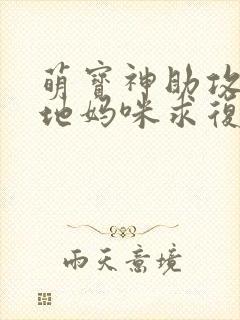 萌寶神助攻
地媽咪求復
雨天意境